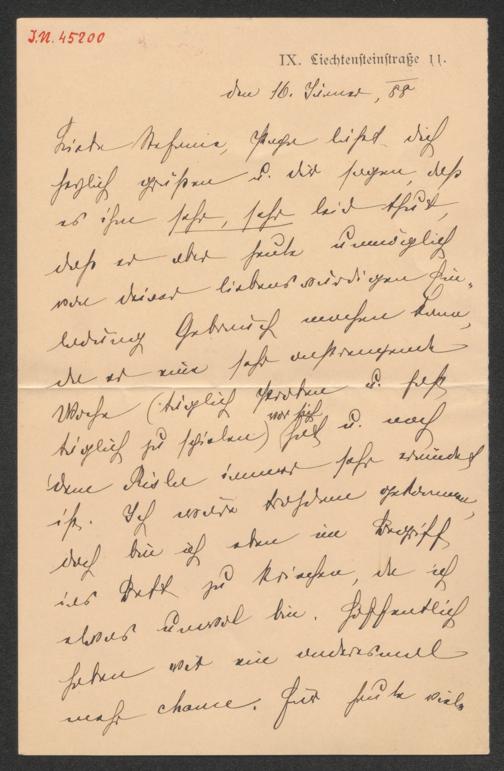 I.N. 45200
IX. Liechtensteinstraße 11.
den 16. Jänner, 88
Liebe Stefanie, läßt dich
herzlich grüßen u. dir sagen, daß
es ihm sehr, sehr leid thut,
daß er aber heute unmöglich
von deiner liebenswürdigen Ein-
ladung Gebrauch machen kann,
da er eine sehr anstrengende
Woche (täglich Proben u. fast
täglich zu spielen) vor sich hat u. nach
dem Rolle immer sehr ermüdet
ist. Ich wäre trotzdem gekommen,
doch bin ich eben im Begriff
ins Bett zu kriechen, da ich
etwas unwol bin. Hoffentlich
haben wir ein anderesmal
mehr chance. Für heute viele